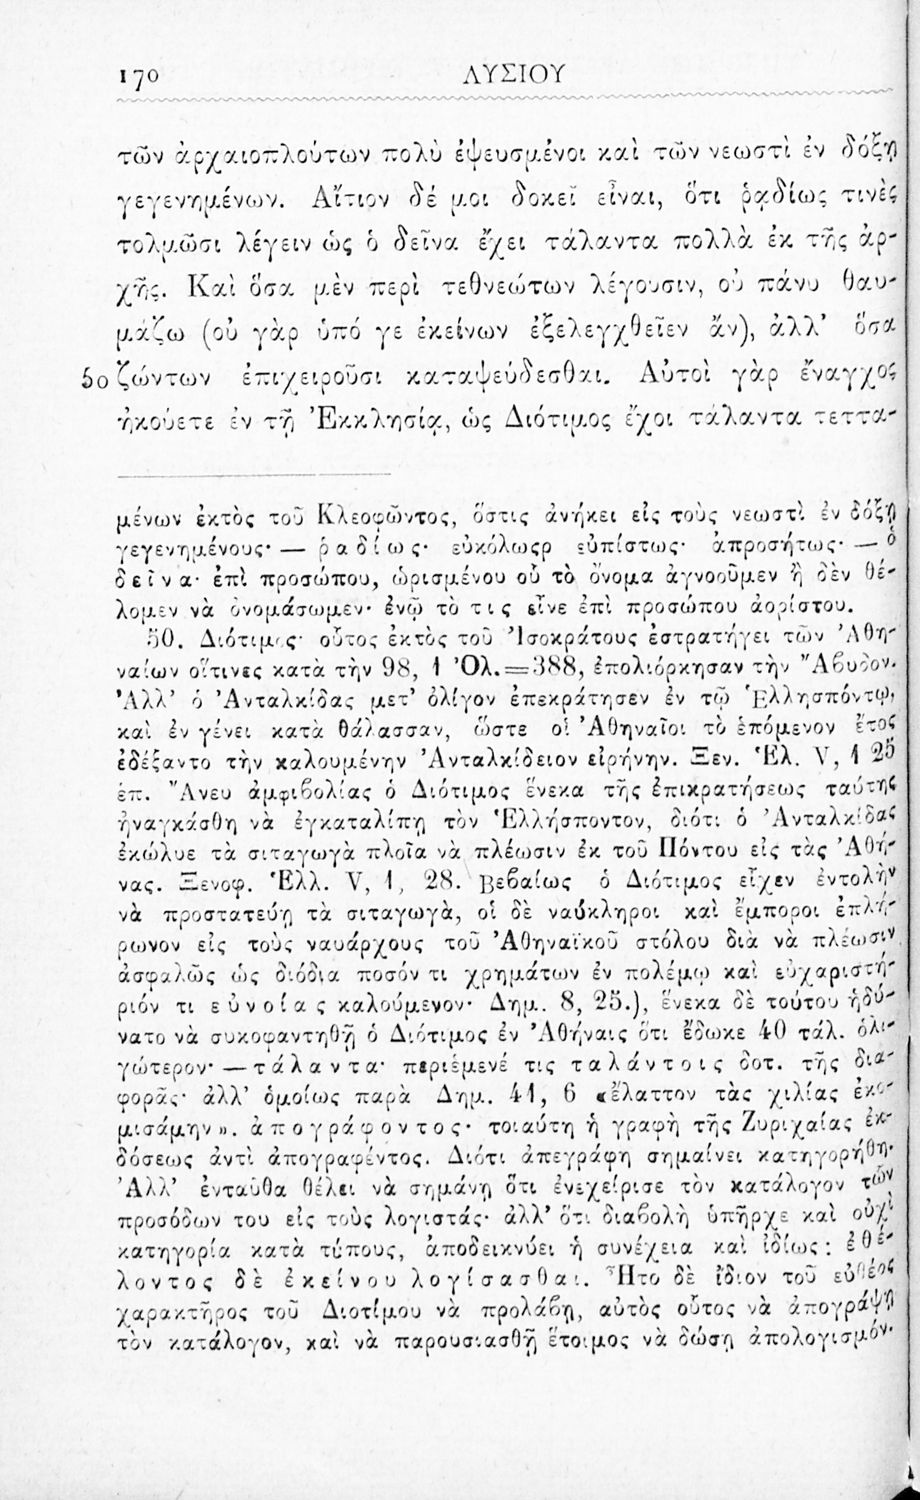 170 ΛΥΣΙΟΥ
τῶν ἀρχαιοπλούτων πολὺ ἐψευσμένοι καὶ τῶν νεωστὶ ἐν δόξῃ
γεγενημένων. Αἴτιον δέ μοι δοκεῖ εἶναι, ὅτι ῥᾳδίως τινὲς
τολμῶσι λέγειν ὡς ὁ δεῖνα ἔχει τάλαντα πολλὰ ἐκ τῆς ἀρ-
χῆς. Καὶ ὅσα μὲν περὶ τεθνεώτων λέγουσιν, οὐ πάνυ θαυ-
μάζω (οὐ γὰρ ὑπό γε ἐκείνων ἐξελεγχθεῖεν ἄν), ἀλλ’ ὅσα
50 ζώντων ἐπιχειροῦσι καταψεύδεσθαι. Αὐτοὶ γὰρ ἔναγχος
ἠκούετε ἐν τῇ Ἐκκλησίᾳ, ὡς Διότιμος ἔχοι τάλαντα τεττα-
μένων ἐκτὸς τοῦ Κλεοφῶντος, ὅστις ἀνήκει εἰς τοὺς νεωστὶ ἐν δόξῃ
γεγενημένους· — ῥαδίως· εὐκόλωςρ εὐπίστως· ἀπροσήτως· — ὁ
δεῖνα· ἐπὶ προσώπου, ὡρισμένου οὗ τὸ ὄνομα ἀγνοοῦμεν ἢ δὲν θέ-
λομεν νὰ ὀνομάσωμεν· ἐνῷ τὸ τις εἶνε ἐπὶ προσώπου ἀορίστου.
50. Διότιμος· οὗτος ἐκτὸς τοῦ Ἰσοκράτους ἐστρατήγει τῶν Ἀθη-
ναίων οἵτινες κατὰ τὴν 98, 1 Ὀλ.=388, ἐπολιόρκησαν τὴν Ἄβυδον.
Ἀλλ’ ὁ Ἀνταλκίδας μετ’ ὀλίγον ἐπεκράτησεν ἐν τῷ Ἑλλησπόντῳ,
καὶ ἐν γένει κατὰ θάλασσαν, ὥστε οἱ Ἀθηναῖοι τὸ ἑπόμενον ἔτος
ἐδέξαντο τὴν καλουμένην Ἀνταλκίδειον εἰρήνην. Ξεν. Ἑλ. V, 1 25
ἑπ. Ἄνευ ἀμφιβολίας ὁ Διότιμος ἕνεκα τῆς ἐπικρατήσεως ταύτης
ἠναγκάσθη νὰ ἐγκαταλίπῃ τὸν Ἑλλήσποντον, διότι ὁ Ἀνταλκίδας
ἐκώλυε τὰ σιταγωγὰ πλοῖα νὰ πλέωσιν ἐκ τοῦ Πόντου εἰς τὰς Ἀθή-
νας. Ξενοφ. Ἑλλ. V, 1, 28. Βεβαίως ὁ Διότιμος εἶχεν ἐντολὴν
νὰ προστατεύῃ τὰ σιταγωγὰ, οἱ δὲ ναύκληροι καὶ ἔμποροι ἐπλή-
ρωνον εἰς τοὺς ναυάρχους τοῦ Ἀθηναϊκοῦ στόλου διὰ νὰ πλέωσιν
ἀσφαλῶς ὡς διόδια ποσόν τι χρημάτων ἐν πολέμῳ καὶ εὐχαριστή-
ριόν τι εὐνοίας καλούμενον· Δημ. 8, 25.), ἕνεκα δὲ τούτου ἠδύ-
νατο νὰ συκοφαντηθῇ ὁ Διότιμος ἐν Ἀθήναις ὅτι ἔδωκε 40 τάλ. ὀλι-
γώτερον· — τάλαντα· περιέμενέ τις ταλάντοις δοτ. τῆς δια-
φορᾶς· ἀλλ’ ὁμοίως παρὰ Δημ. 41, 6 «ἔλαττον τὰς χιλίας ἐκο-
μισάμην». ἀπογράφοντος· τοιαύτη ἡ γραφὴ τῆς Ζυριχαίας ἐκ-
δόσεως ἀντὶ ἀπογραφέντος. Διότι ἀπεγράφη σημαίνει κατηγορήθη·
Ἀλλ’ ἐνταῦθα θέλει νὰ σημάνῃ ὅτι ἐνεχείρισε τὸν κατάλογον τῶν
προσόδων του εἰς τοὺς λογιστάς· ἀλλ’ ὅτι διαβολὴ ὑπῆρχε καὶ οὐχὶ
κατηγορία κατὰ τύπους, ἀποδεικνύει ἡ συνέχεια καὶ ἰδίως: ἐθέ-
λοντος δὲ ἐκείνου λογίσασθαι. Ἦτο δὲ ἴδιον τοῦ εὐθέος
χαρακτῆρος τοῦ Διοτίμου νὰ προλάβῃ, αὐτὸς οὗτος νὰ ἀπογράψῃ
τὸν κατάλογον, καὶ νὰ παρουσιασθῇ ἕτοιμος νὰ δώσῃ ἀπολογισμόν·